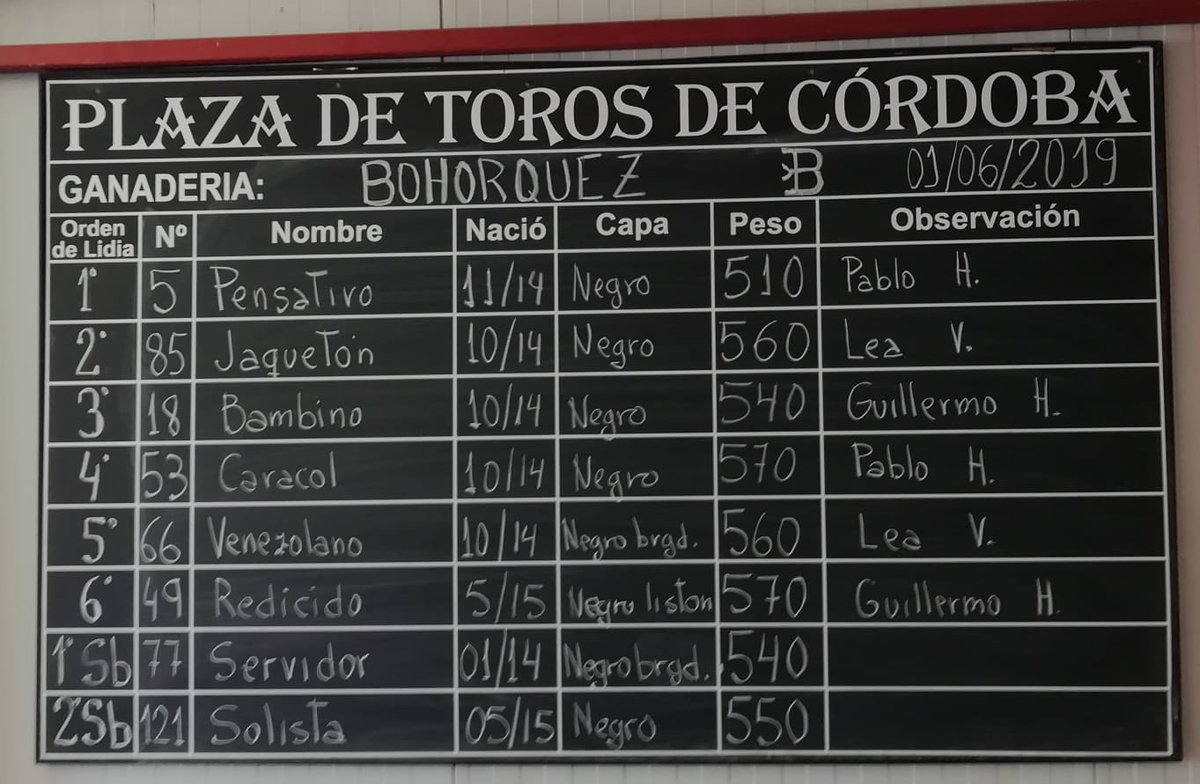 PLAZA DE TOROS DE CÓRDOBA
GANADERIA: BOHORQUEZ B 01/06/2019
Orden de Lidia Nº Nombre Nació Capa Peso Observación
1º 5 Pensativo 11/14 Negro 510 Pablo H.
2º 85 Jaquetón 10/14 Negro 560 Lea V.
3º 18 Bambino 10/14 Negro 540 Guillermo H.
4º 53 Caracol 10/14 Negro 570 Pablo H.
5º 66 Venezolano 10/14 Negro brgd. 560 Lea V.
6º 49 Redicido 5/15 Negro liston 570 Guillermo H.
1º Sb 77 Servidor 01/14 Negro brgd. 540
2º Sb 121 Solista 05/15 Negro 550